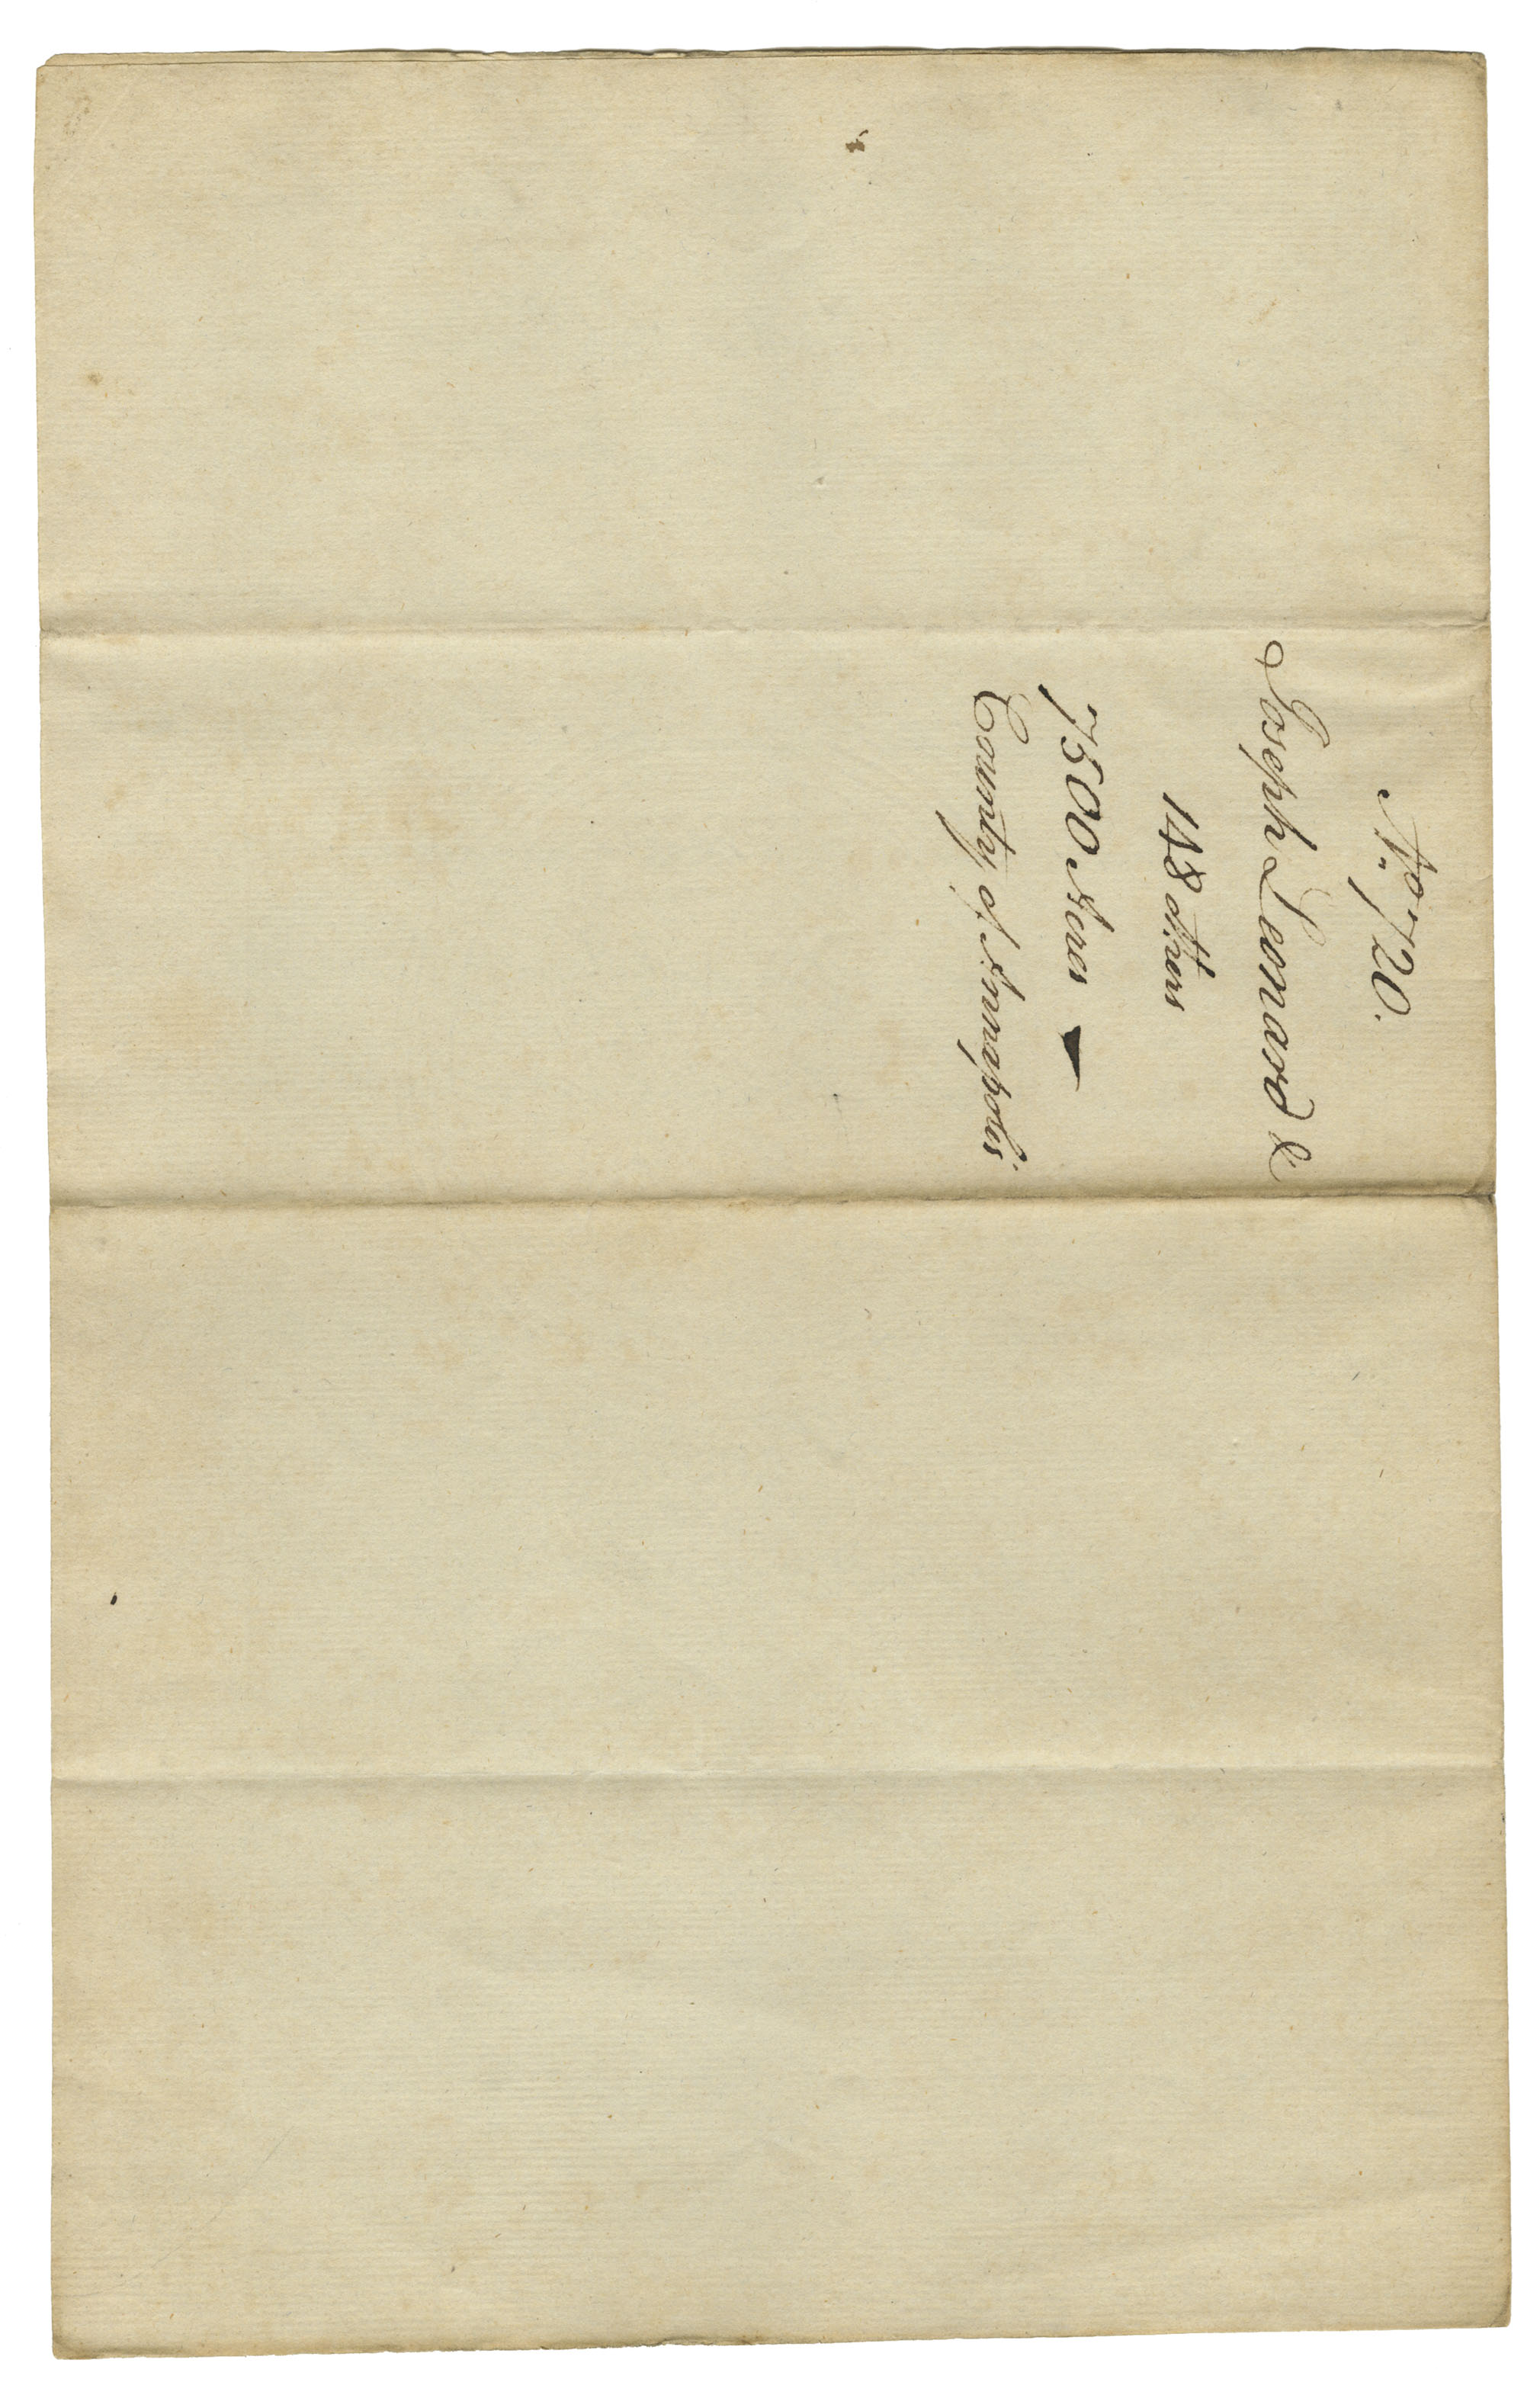 No. 720.
Joseph Leonard &
148 others
7500 Acres
County of Annapolis